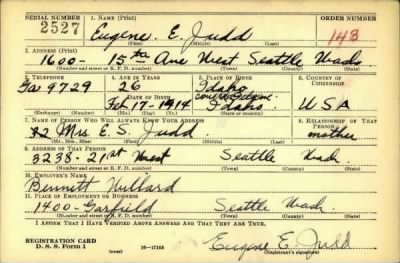 SERIAL NUMBER 1. NAME (Print) ORDER NUMBER
2527 Eugene. E. Judd 148
(First) (Middle) (Last)
2. ADDRESS (Print)
1600 - 15th Ave West. Seattle Wash
(Number and street or R. F. D. number) (Town) (County) (State)
3. TELEPHONE 4. AGE IN YEARS 5. PLACE OF BIRTH 6. COUNTRY OF CITIZENSHIP
Ga 9729 26 Idaho
DATE OF BIRTH
Feb 17-1914 Idaho USA
(Exchange) (Number) (Mo.) (Day) (Yr.) (State or country)
7. NAME OF PERSON WHO WILL ALWAYS KNOW YOUR ADDRESS 8. RELATIONSHIP OF THAT PERSON
Mrs. E. S. Judd. mother
(Mr., Mrs., Miss) (First) (Middle) (Last)
9. ADDRESS OF THAT PERSON
3238-21st West Seattle Wash.
(Number and street or R. F. D. number) (Town) (County) (State)
10. EMPLOYER'S NAME
Bennitt Hullard
11. PLACE OF EMPLOYMENT OR BUSINESS
1400-Garfield Seattle Wash.
(Number and street or R. F. D. number) (Town) (County) (State)
I AFFIRM THAT I HAVE VERIFIED ABOVE ANSWERS AND THAT THEY ARE TRUE.
REGISTRATION CARD
D. S. S. Form 1 (over) 16-17105 Eugene E. Judd
(Registrant's signature)